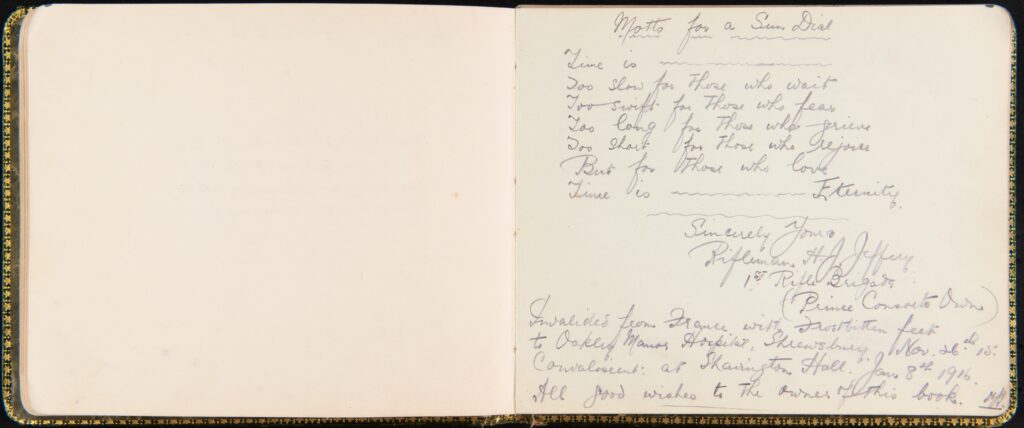 Motto for a Sun Dial
Time is
Too slow for those who wait
Too swift for those who fear
Too long for those who grieve
Too short for those who rejoice
But for those who love
Time is Eternity.
Sincerely Yours
Rifleman H. J. Jeffery
1st Rifle Brigade
(Prince Consorts Own)
Invalided from France with Frostbitten feet
to Oakley Manor Hospital, Shrewsbury Nov. 26th 15.
Convalescent at Hall. Jan 8th 1916.
All good wishes to the owner of this book.